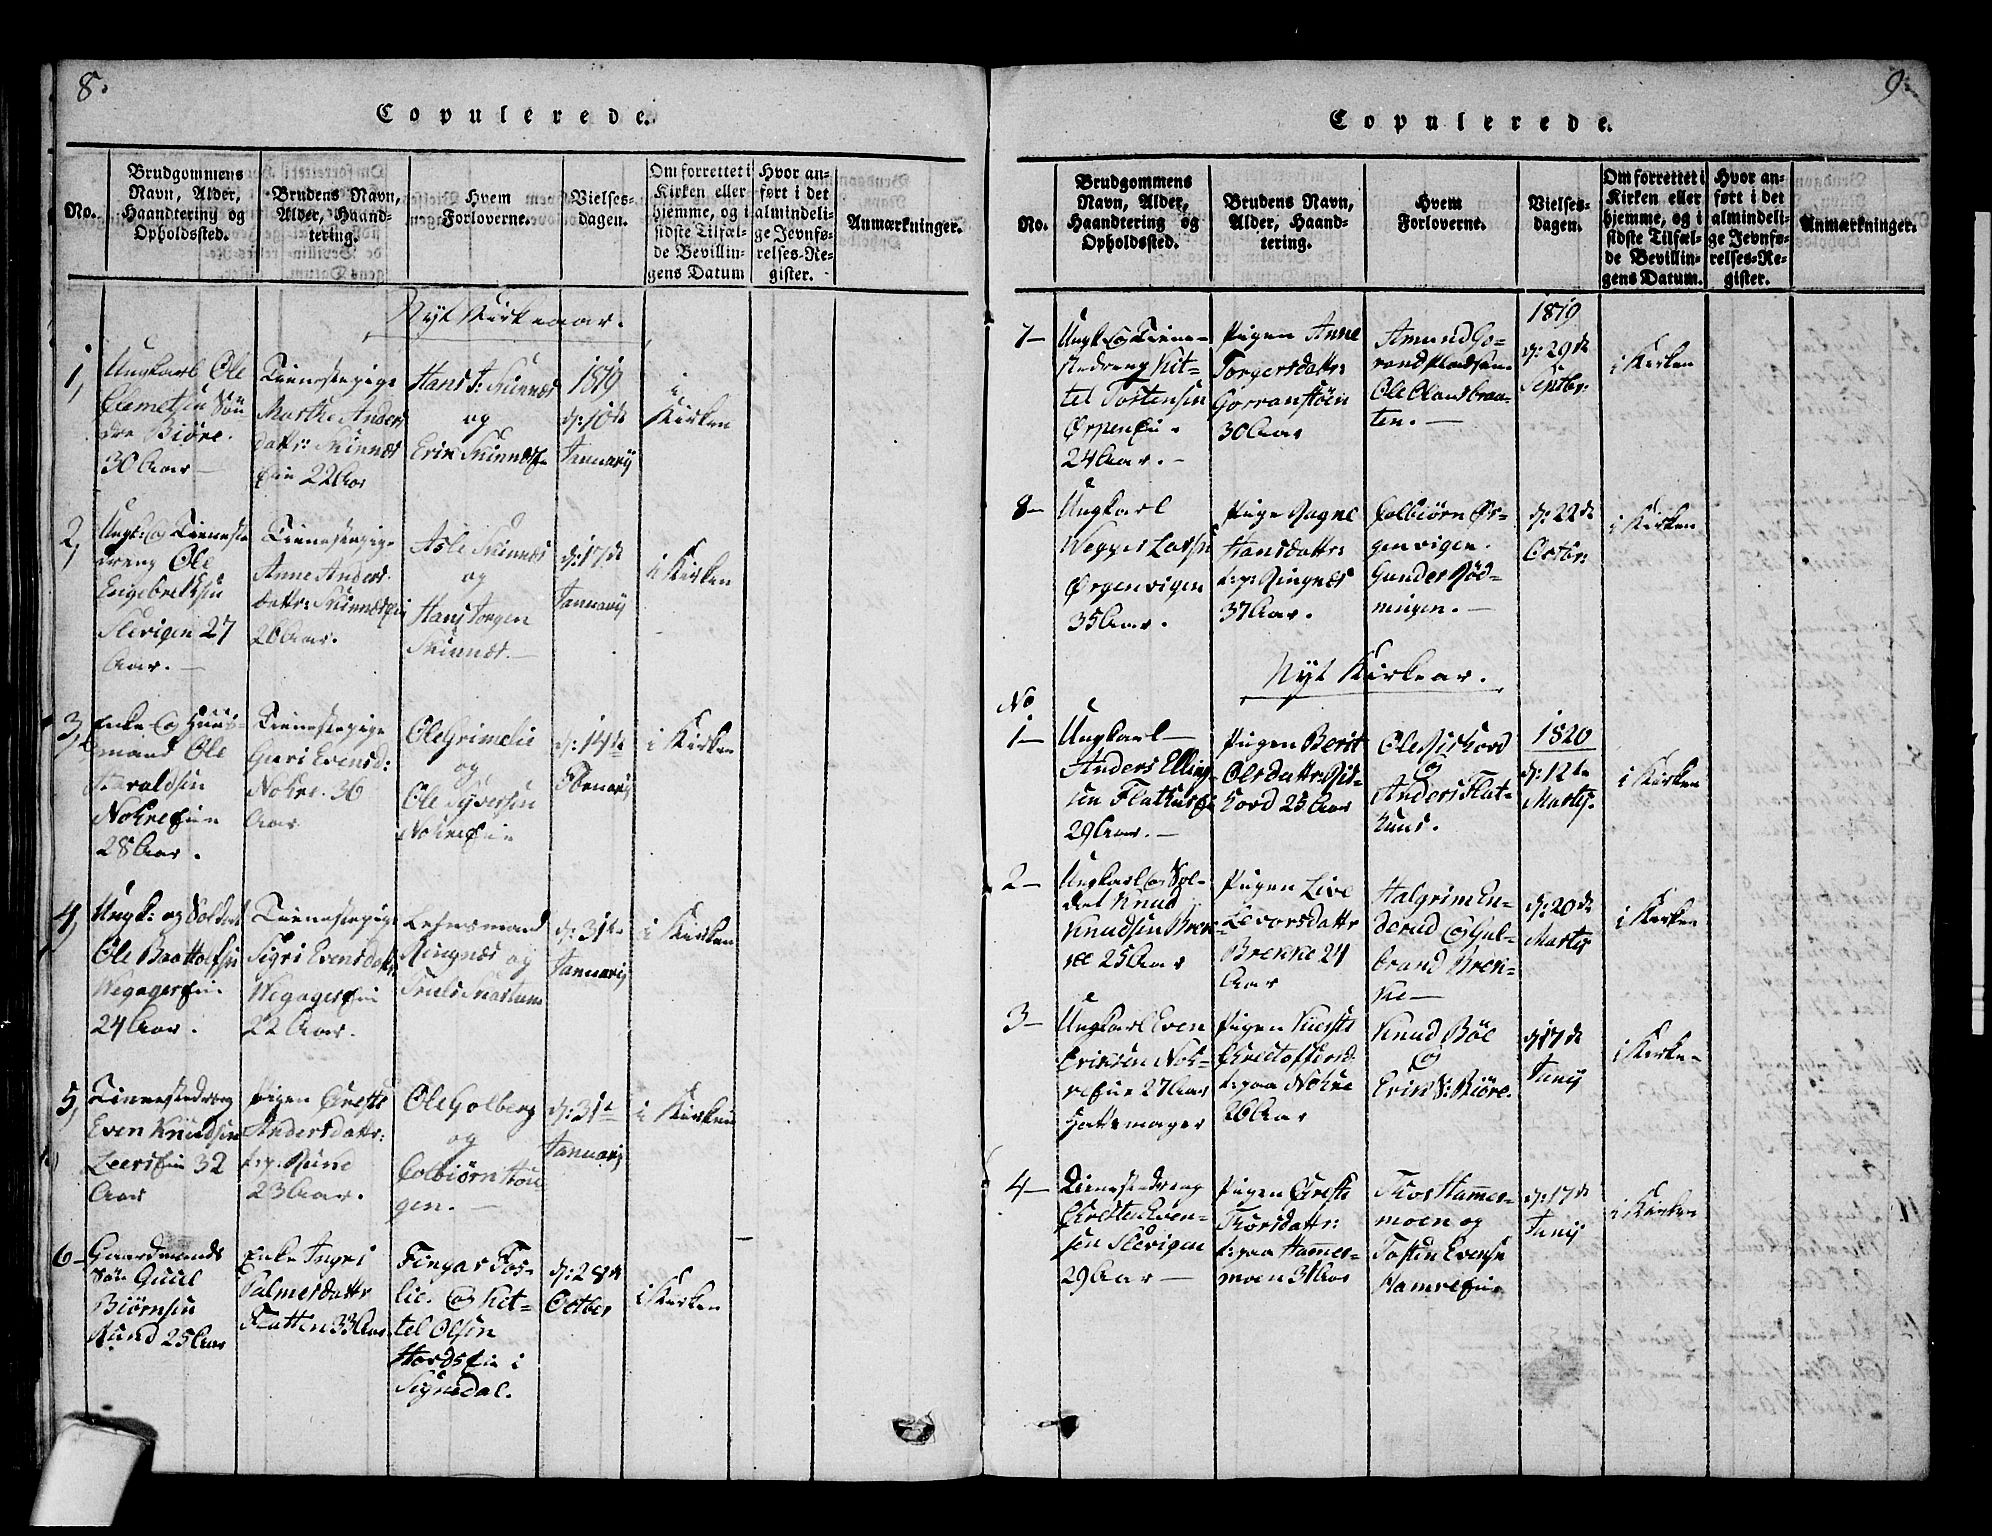 8.
Copulerede.
No.
Brudgommens
Navn, Alder,
Haandtering og
Opholdssted.
Brudens Navn,
Alder, Haand-
tering.
Hvem
Forloverne.
Vielses-
dagen.
Om forrettet i
Kirken eller
hjemme, og i
sidste Tilfæl-
de Bevillin-
gens Datum
Hvor an-
ført i det
almindeli-
ge Jevnfø-
relses-Re-
gister.
Anmærkninger.
Nyt Kirkeaar.
1,
Ungkarl Ole
Clemetsøn Søn-
dre Biøre.
30 Aar
Tienestepige
Marthe Anders
dattr: Skinnes
eie 22 Aar
Hans J: Skinnes
og
Erik Skinnes
1819
d: 10de
Januarij
i
Kirken
2,
Ungk: og Tieneste
dreng Ole
Engebretsøn
Slevigen 27
Aar.
Tienestepige
Anne Anders
dattr: Skinneseie
26 Aar.
Asle Skinnes
og
Hans Jørgen
Skinnes.
d: 17de
Januarij
i Kirken
3,
Enke- og Huus-
mand Ole
Haraldsøn
Nokreeie
28 Aar.
Tienestepige
Guri Evensd:
Nokre. 36
Aar
Ole Grimelie
og
Ole Syversøn
Nokreeie
d: 14de
i Kirken
4,
Ungk: og Soldat
Ole Baottolfsøn
Wegagereie
24 Aar.
Tienestepige
Sigri Evensdatr
Wegagereie
22 Aar.
Lehnsmand
Ringnes og
Truls Skartum
d: 31te
Januarij
i Kirken
5,
Tienestedreng
Even Knudsøn
Leerseie 32
Aar
Pigen Grethe
Andersdattr:
t: p: Rund
23 Aar.
Ole Golberg
og
Colbiørn Hou-
gen.
d: 31te
Januarij
i Kirken
6-
Gaardmands
Søn Guul
Biørnsøn
Rund 25 Aar
Enke Ingri
Palmesdattr
Flatten 33 Aar
Fingar Fos-
lie. og Kit-
tel Olsøn
Hordseie i
Signedal.
d: 28de
Octber
i Kirken
9.
Copulerede.
No.
Brudgommens
Navn, Alder,
Haandtering og
Opholdssted.
Brudens Navn,
Alder, Haand-
tering.
Hvem
Forloverne.
Vielses-
dagen.
Om forrettet i
Kirken eller
hjemme, og i
sidste Tilfæl-
de Bevillin-
gens Datum.
Hvor an-
ført i det
almindeli-
ge Jevnfø-
relses-Re-
gister.
Anmærkninger.
7-
Ungk: og Tiene-
stedreng Kit-
tel Tostensøn
Ørpeneie.
24 Aar.
Pigen Anne
Torgersdattr:
Gorranstøen
30 Aar
Amund Go-
Ole Olandsbraa-
ten.
1819
d: 29de
Septbr:
i Kirken
8-
Ungkarl
Wegger Larsøn
Ørgenvigen
35 Aar.
Pige Ragne
Hansdattr:
t: p: Ringnes
37 Aar.
Colbiørn Ør-
genvigen.
Gunder Rød-
ningen.
d: 22de
Octbr:
i Kirken
Nyt Kirkear.
No
1-
Ungkarl
Anders Elling-
søn Flathus
29 Aar.
Pigen Berit
Olesdattr:
25 Aar
Ole
og
Anders Flat-
huus.
1820
d: 12te
Martij.
i Kirken
2-
Ungkarl og Sol-
dat Knud
Knudsøn Brek-
ke 25 Aar
Pigen Live
Levorsdattr
Brekke 24
Aar
Halgrim En-
derud og Gul-
brand Brek-
ke
d: 20de
Martij
i Kirken
3-
Ungkarl Even
Eriksøn Nok-
reeie 27 Aar
Hattemager
Pigen Kirsti
Christoffersd.
t: paa Nokre
26 Aar
Knud Bøe
og
Erik S: Biøre.
d: 17de
Junij
i Kirken
4-
Tienestedreng
Christen Even-
søn Slevigen
29 Aar
Pigen Grethe
Thorsdattr:
t: paa Hammer-
moen 31 Aar
Thor Hammer-
moen og
Tosten Evensøn
Hamreeie
d: 17de
Junij
i Kirken